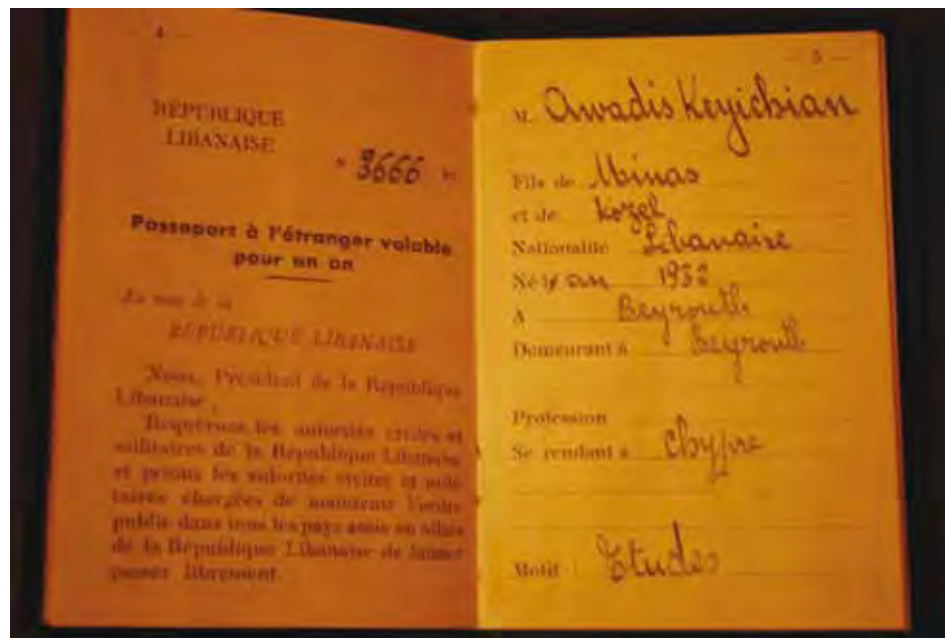 — 4 —
RÉPUBLIQUE
LIBANAISE
N 3666
Passeport à l'étranger valable
pour un an
Au nom de la
RÉPUBLIQUE LIBANAISE
Nous, Président de la République
Libanaise,
Requérons les autorités civiles et
militaires de la République Libanaise
et prions les autorités civiles et mili-
taires chargées de maintenir l'ordre
public dans tous les pays amis ou alliés
de la République Libanaise de laisser
passer librement.
— 5 —
M. Awadis Keyichian
Fils de Minas
et de Kozel
Nationalité Libanaise
Né le an 1932
A Beyrouth
Demeurant à Beyrouth
Profession
Se rendant à Chypre
Motif : Etudes